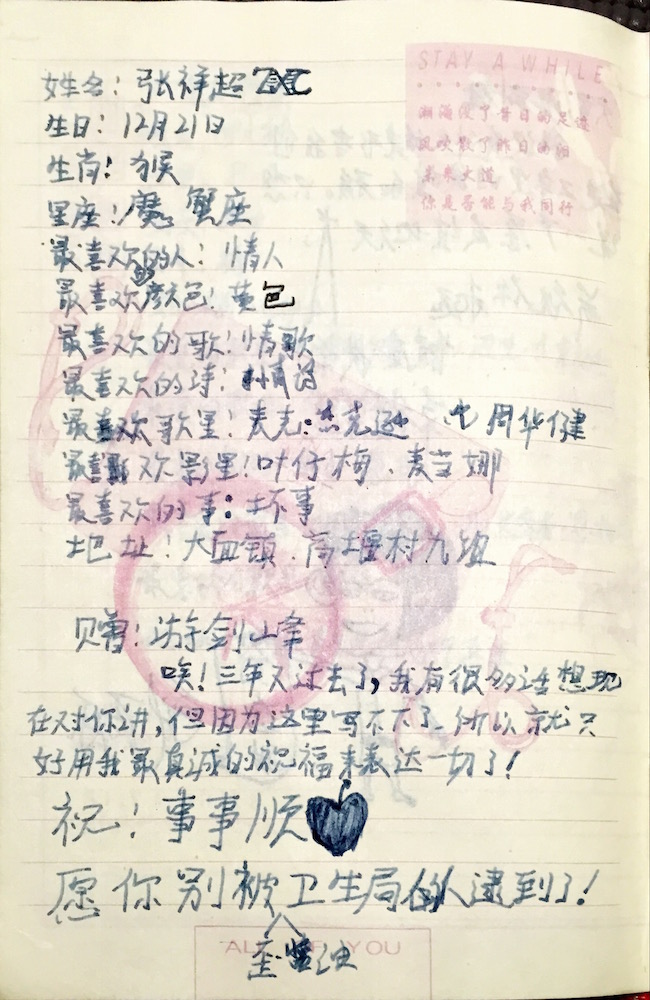 STAY A WHILE
潮海没了昔日的足迹
风吹散了昨日的泪
未来大道
你是否能与我同行
姓名：张祥超 ZXC
生日：12月21日
生肖：猴
星座：魔蟹座
最喜欢的人：情人
最喜欢的颜色：黄色
最喜欢的歌：情歌
最喜欢的诗：情诗
最喜欢歌星：麦克：杰克逊 七 周华健
最喜欢影星：叶仔梅、麦当娜
最喜欢的事：坏事
地址：大面镇 高堰村九组
贝赠：游剑峰
唉！三年又过去了，我有很多话想现
在对你讲，但因为这里写不下了，所以就只
好用我最真诚的祝福来表达一切了！
祝：事事顺
愿你别被卫生局的人逮到了！
歪酱油
YOU